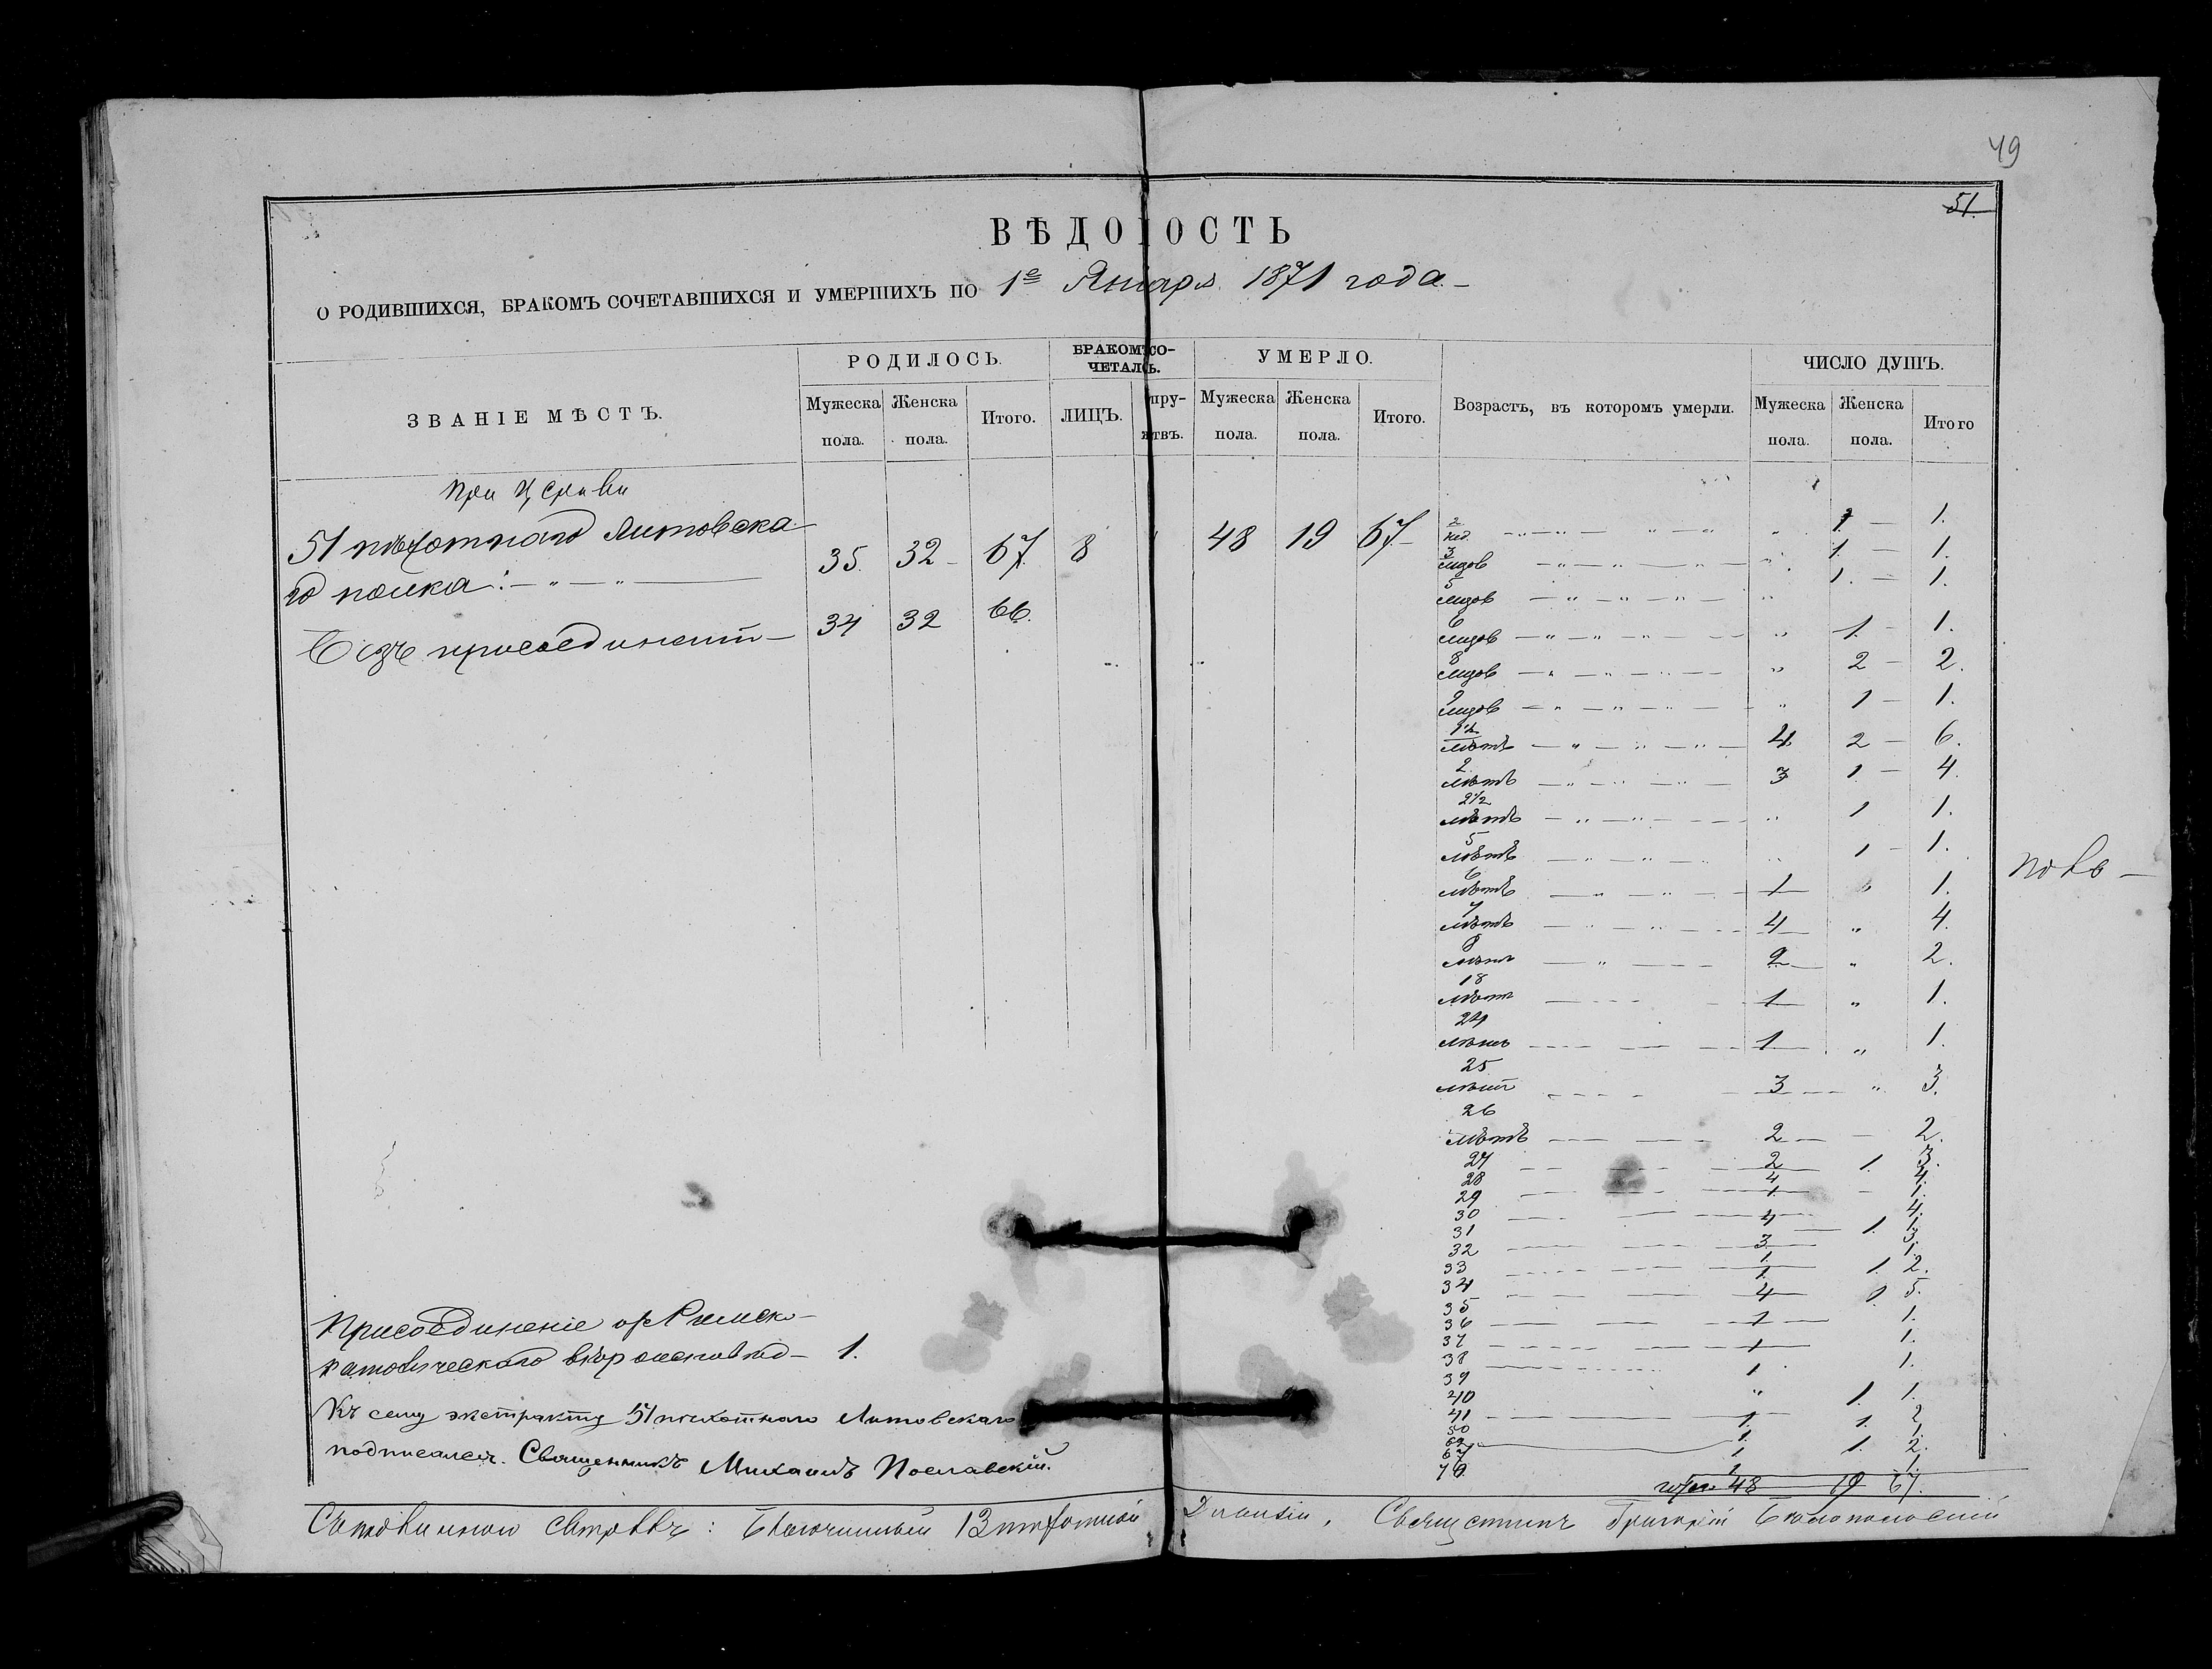 49
51.
ВѢДОМОСТЬ
О РОДИВШИХСЯ, БРАКОМЪ СОЧЕТАВШИХСЯ И УМЕРШИХЪ ПО 1е Января 1871 года.
ЗВАНІЕ МѢСТЪ. РОДИЛОСЬ. БРАКОМЪ СО- УМЕРЛО. Возрастъ, въ которомъ умерли. ЧИСЛО ДУШЪ.
ЧЕТАЛСЬ.
Мужеска Женска Итого. ЛИЦЪ. пру- Мужеска Женска Итого. Мужеска Женска Итого
пола. пола. ствъ. пола. пола. пола. пола.
При Церкви
51 пѣхотнаго Литовска-
го полка: 35. 32 67. 8 48 19 67
Безъ присоединен 34 32 66.
2 нед. „ 1 1.
3 мѣсяц „ 1. 1.
5 „ 1. 1.
6 „ 1. 1.
8 „ 2 2.
9 „ 1 1.
1½ лѣтъ 4 2 6.
2 лѣтъ 3 1 4.
2½ лѣтъ „ 1 1.
5 лѣтъ „ 1 1.
6 лѣтъ 1 „ 1.
7 лѣтъ 4 „ 4.
8 лѣтъ 2 „ 2.
18 лѣтъ 1 „ 1.
24 лѣтъ 1 „ 1.
25 лѣтъ 3 „ 3.
26 лѣтъ 2 2.
27 2 1. 3.
28 4 4.
29 1. 1.
30 4 4.
31 1. 1.
32 3 3.
33 1 1.
34 1 1. 2.
35 4 1 5.
36 1 1.
37 1 1.
38
39 1 1.
40 „ 1. 1.
41 1. 1. 2.
50 1. 1.
67 1 1. 2.
70. 1 1.
итого 48 19 67.
Присоединеніе отъ Римско-
католическаго вѣроисповѣд- 1.
Къ сему экстракту 51 пѣхотнаго Литовскаго
подписался. Священникъ Михаилъ Пославскій.
Благочинный 13 пѣхотной Дивизіи, Священникъ Григорій